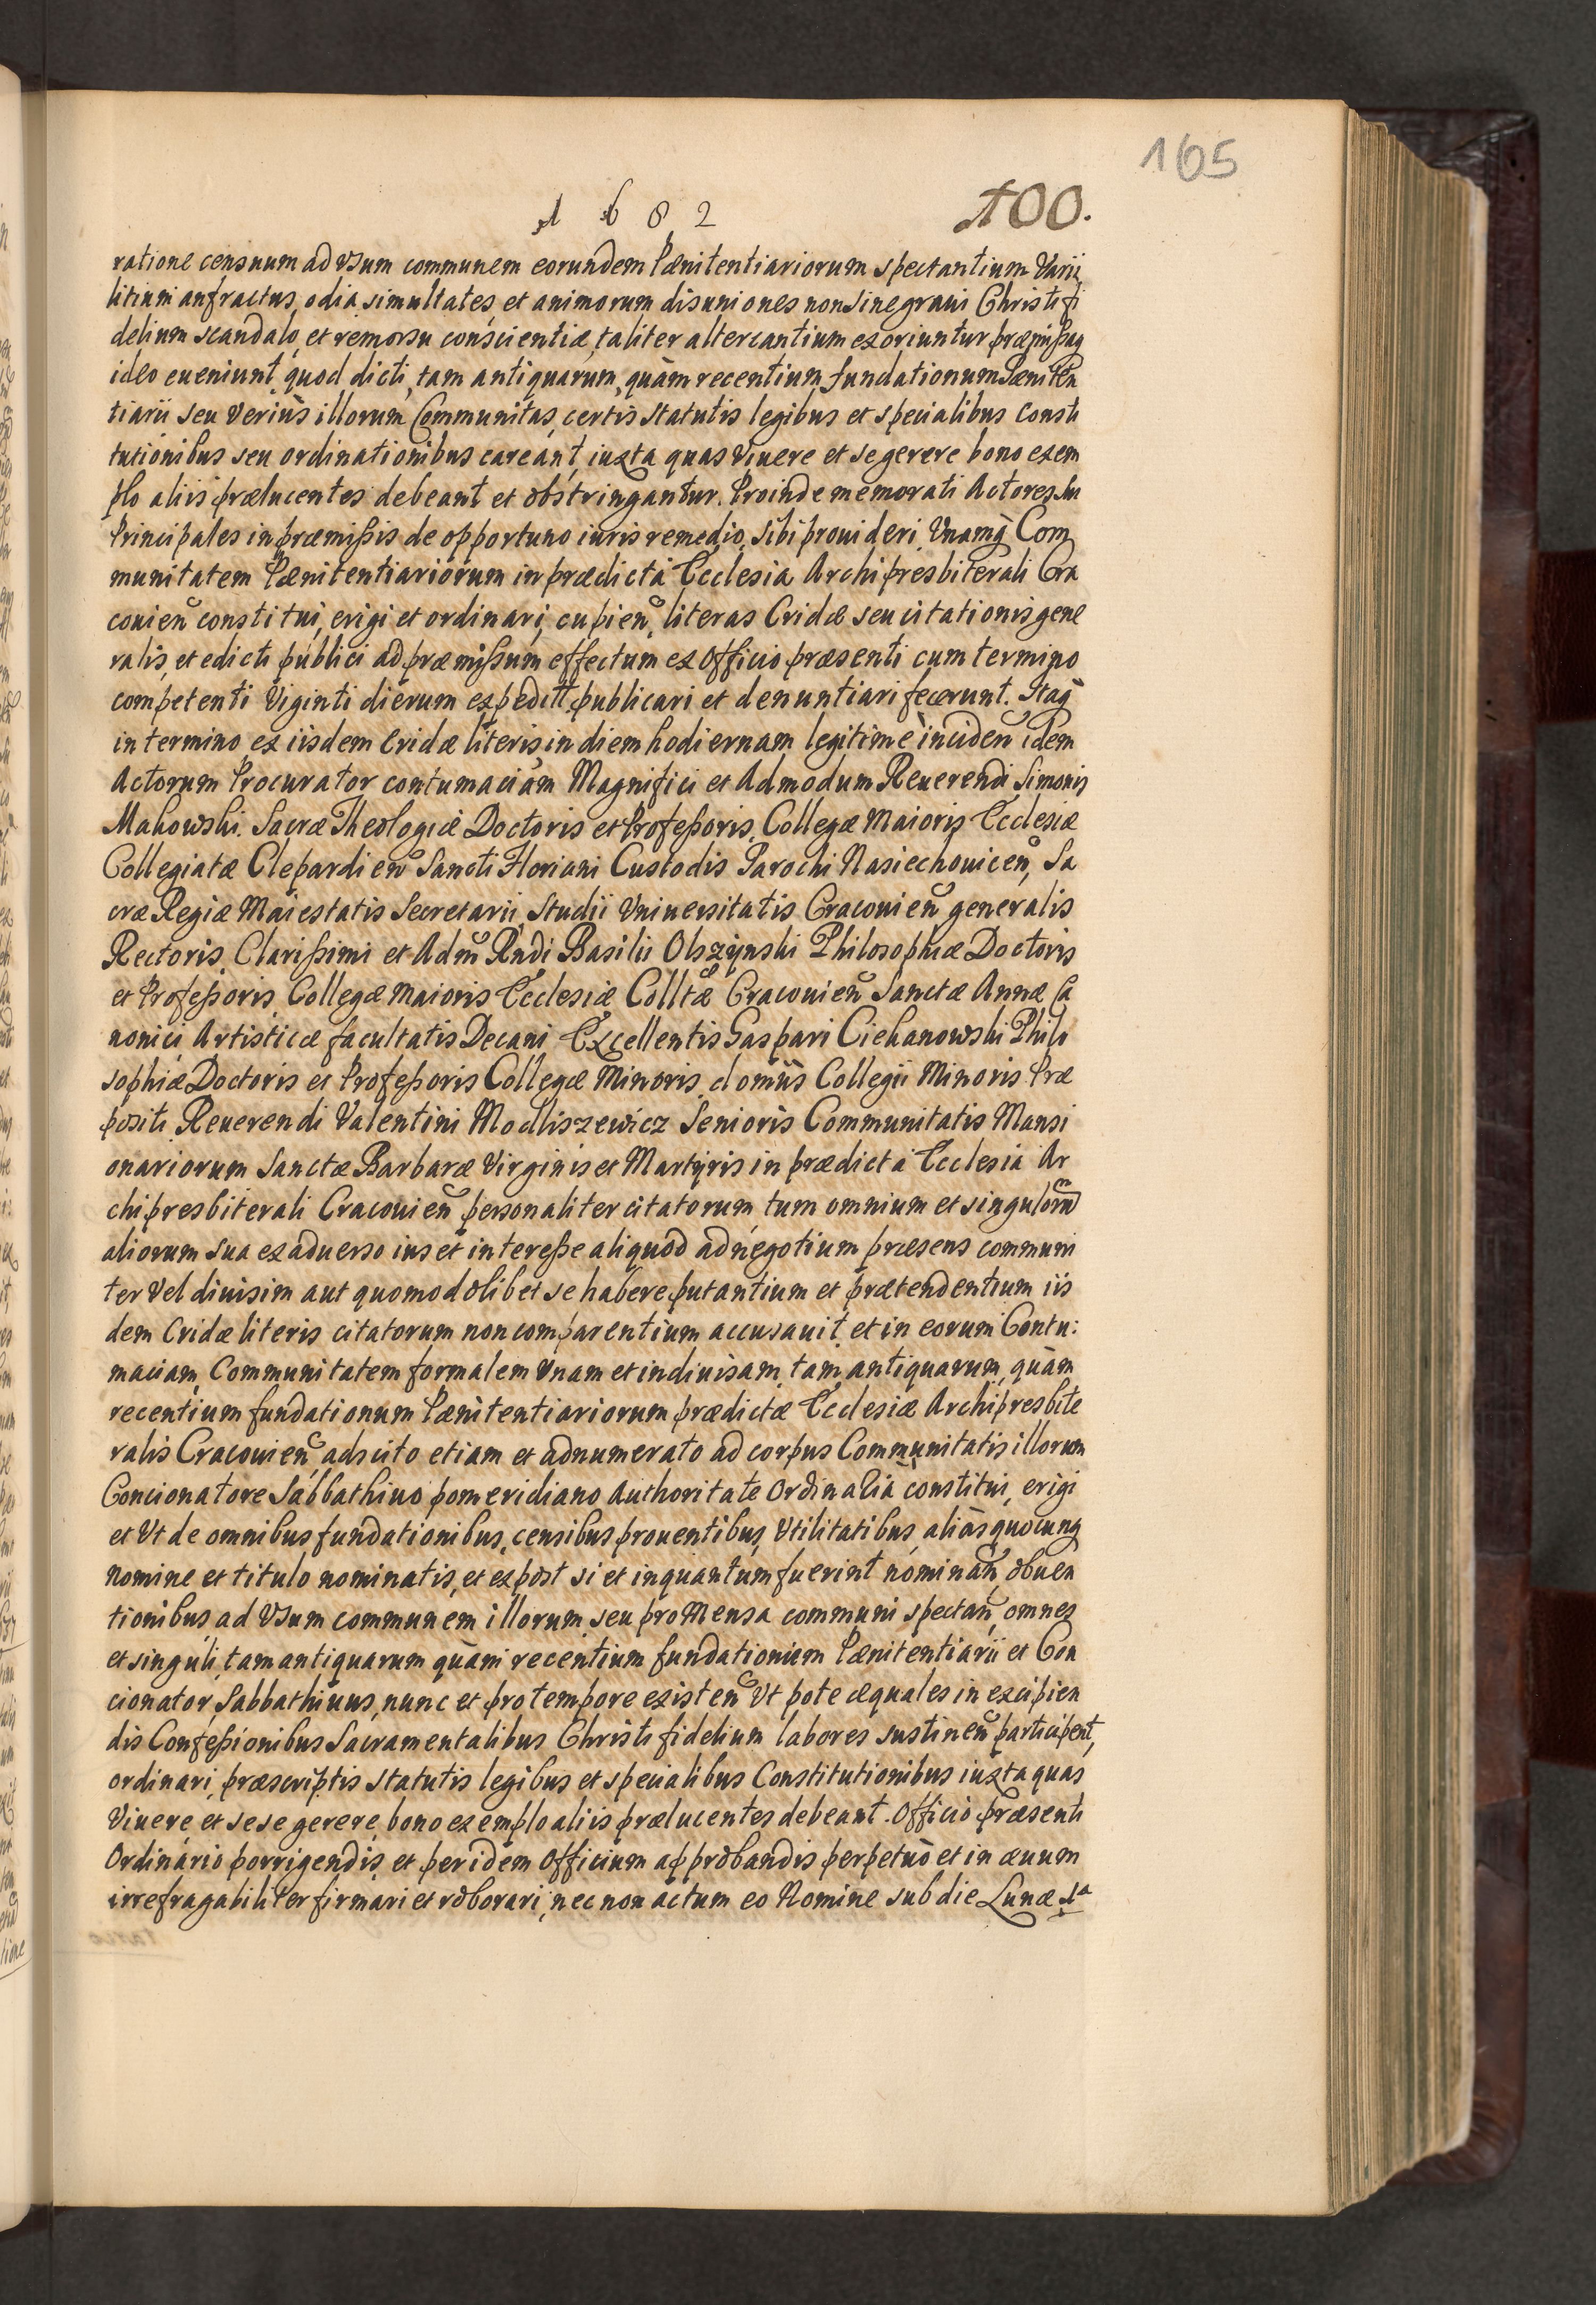 165
1682
100.
ratione censuum ad Vsum communem eorundem Pænitentiariorum spectantium Varii
litium anfractus, odia simultates, et animorum disuniones non sine graui Christi fi
delium scandalo, et remorsu conscientiæ, taliter altercantium exoriuntur præmissaq
ideo eueniunt, quod dicti, tam antiquarum, quàm recentium fundationum Pæniten
tiarii seu Veriùs illorum Communitas, certis statutis legibus et specialibus Consti
tutionibus seu ordinationibus careant, iuxta quas Viuere et se gerere bono exem
plo aliis prælucentes debeant et obstringantur. Proinde memorati Actores su
Principales in præmissis de opportuno iuris remedio, sibi prouideri, Vnamq Com
munitatem Pænitentiariorum in prædicta Ecclesia Archipresbiterali Cra
couien constitui, erigi et ordinari, cupien, literas Cridæ seu citationis gene
ralis, et edicti publici ad præmissum effectum ex Officio præsenti cum termino
competenti Viginti dierum expeditt publicari et denuntiari fecerunt. Itaq
in termino ex iisdem Cridæ literis in diem hodiernam legitimè inciden idem
Actorum Procurator contumaciam Magnifici et Admodum Reuerendi Simonis
Makowski. Sacræ Theologiæ Doctoris et Professoris, Collegæ Maioris Ecclesiæ
Collegiatæ Clepardien Sancti Floriani Custodis Parochi Nasiechouicen, Sa
cræ Regiæ Maiestatis Secretarii, Studii Vniuersitatis Cracouien generalis
Rectoris, Clarissimi et Adm Rndi Basilii Olszynski Philosophiæ Doctoris
et Professoris, Collegæ Maioris Ecclesiæ Colltæ Cracouien Sanctæ Annæ Ca
nonici, Artisticæ facultatis Decani Excellentis Gaspari Ciekanowski Philo
sophiæ Doctoris et Professoris Collegæ Minoris, domûs Collegii Minoris Præ
positi, Reuerendi Valentini Modliszewicz Senioris Communitatis Mansi
onariorum Sanctæ Barbaræ Virginis et Martyris in prædicta Ecclesia Ar
chipresbiterali Cracouien personaliter citatorum tum omnium et singulorum
aliorum sua ex aduerso ius et interesse aliquod ad negotium præsens communi
ter Vel diuisim aut quomodolibet se habere putantium et prætendentium iis
dem Cridæ literis citatorum non comparentium accusauit, et in eorum Contu:
maciam, Communitatem formalem Vnam et indiuisam, tam antiquarum, quàm
recentium fundationum Pænitentiariorum prædictæ Ecclesiæ Archipresbite
ralis Cracouien, adscito etiam et adnumerato ad corpus Communitatis illorum
Concionatore Sabbathino pomeridiano Authoritate Ordinaria constitui, erigi
et Vt de omnibus fundationibus, censibus prouentibus, Vtilitatibus, aliàs quocunq
nomine et titulo nominatis, et expost si et inquantum fuerint nominan, obuen
tionibus ad Vsum communem illorum, seu pro Mensa communi spectan, omnes
et singuli, tam antiquarum quàm recentium fundationum Pænitentiarii et Con
cionator Sabbathinus, nunc et pro tempore existen Vt pote æquales in excipien
dis Confessionibus Sacramentalibus Christi fidelium labores sustinen participent,
ordinari, præscriptis statutis legibus et specialibus Constitutionibus iuxta quas
Viuere et sese gerere, bono exemplo aliis prælucentes debeant. Officio præsenti
Ordinario porrigendis, et per idem Officium approbandis perpetuò et in æuum
irrefragabiliter firmari et roborari, nec non actum eo Nomine sub die Lunæ 1a